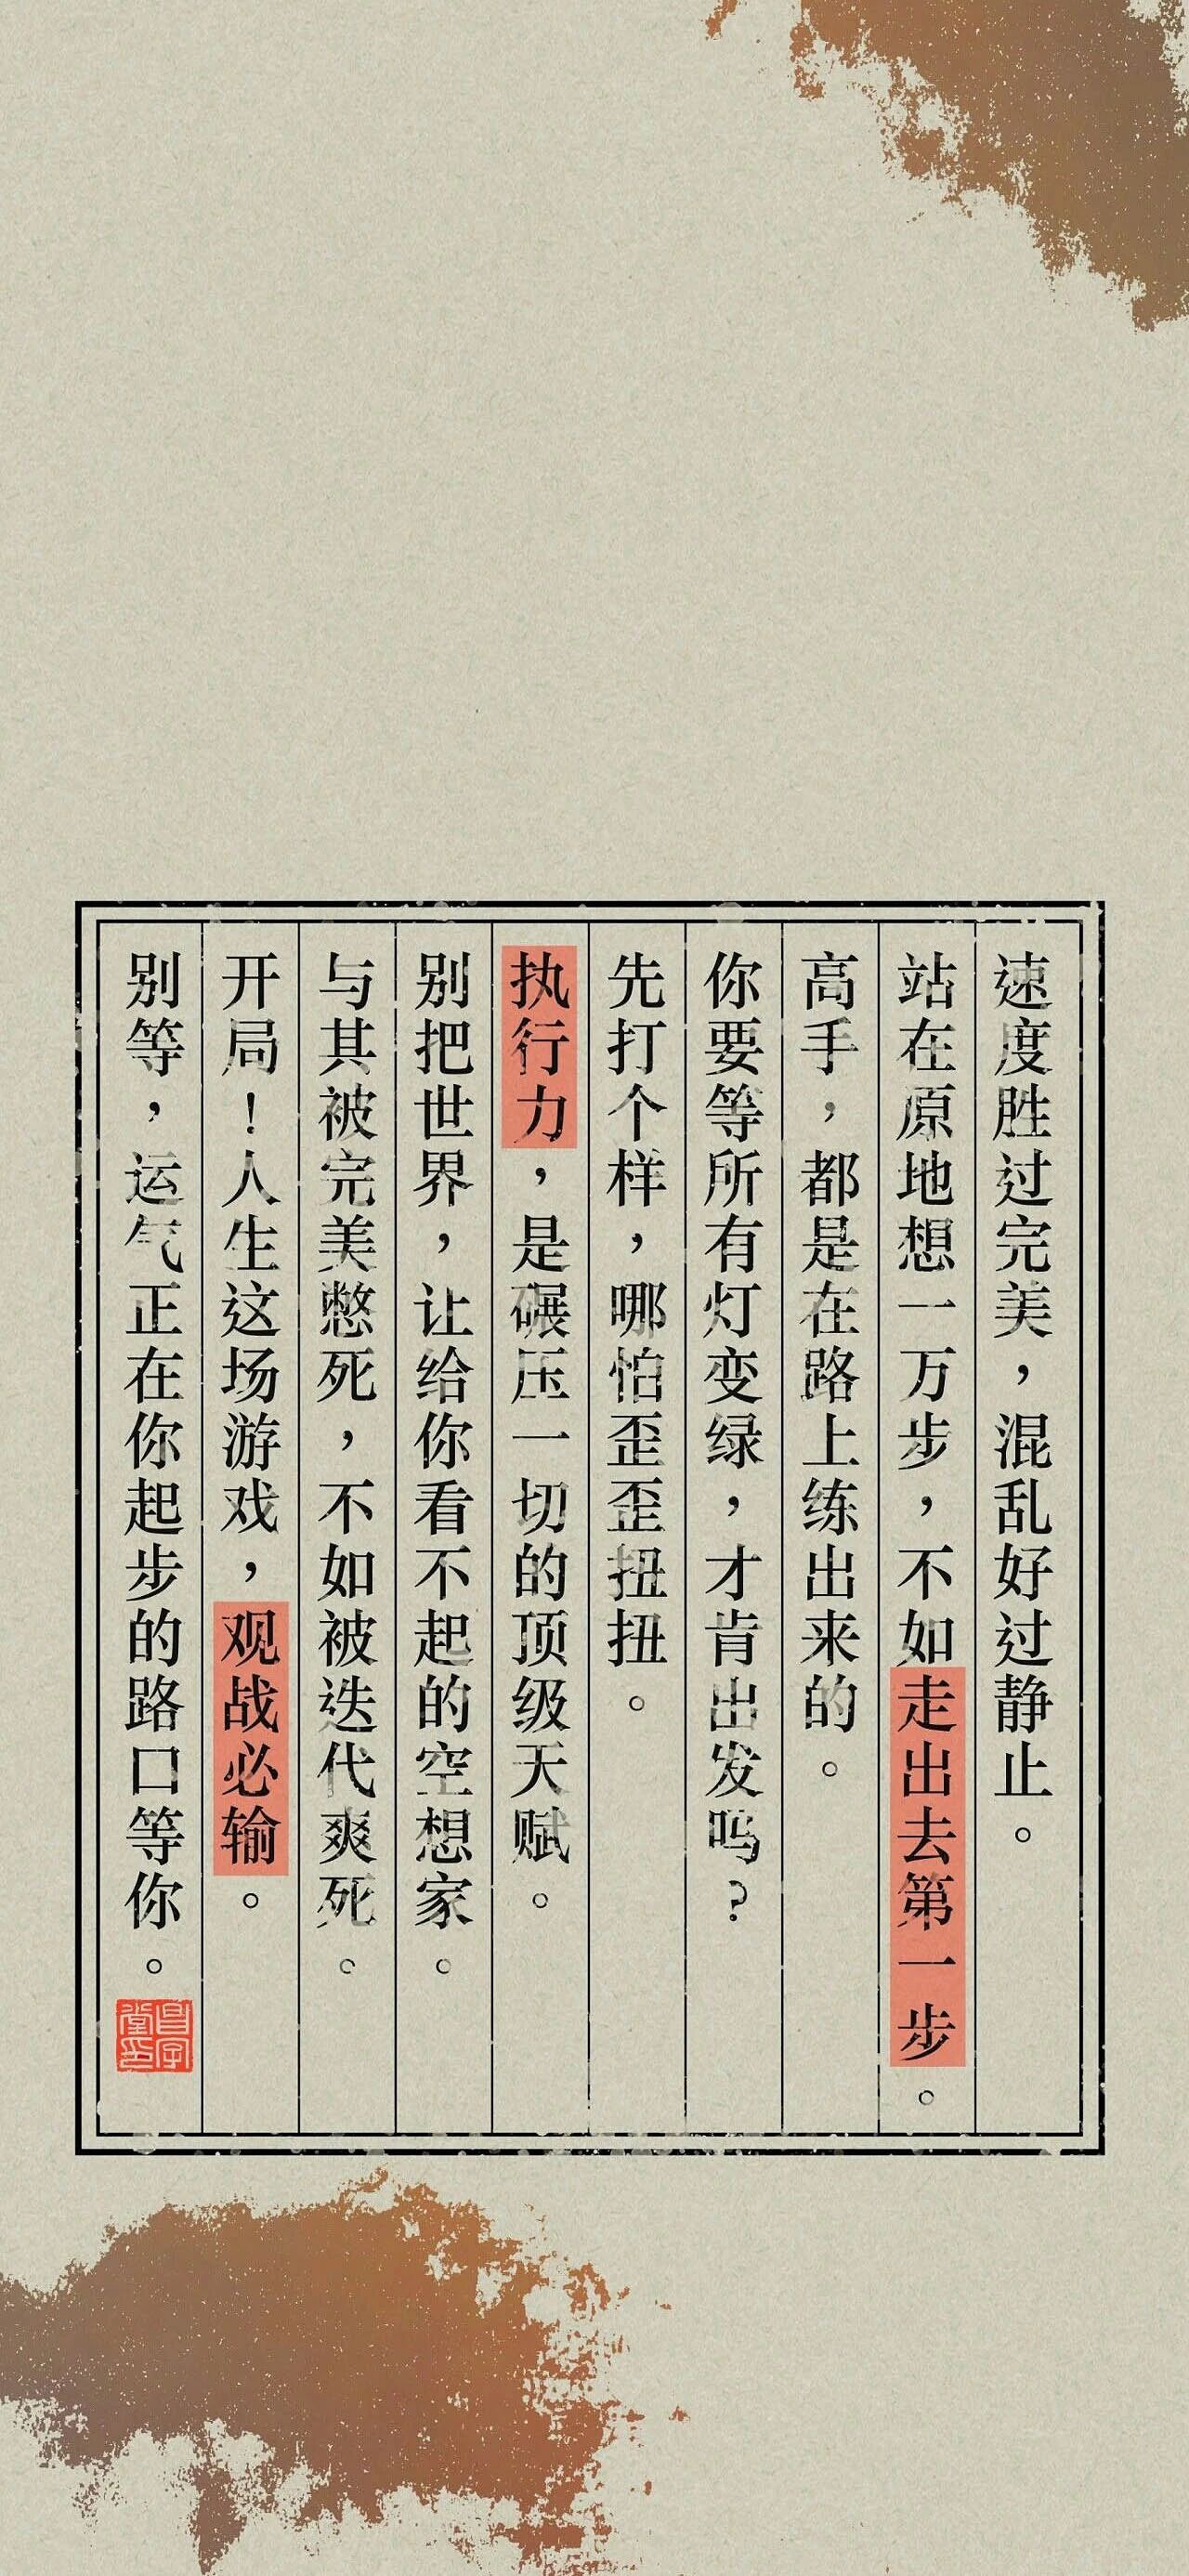 速度胜过完美，混乱好过静止。
站在原地想一万步，不如走出去第一步。
高手，都是在路上练出来的。
你要等所有灯变绿，才肯出发吗？
先打个样，哪怕歪歪扭扭。
执行力，是碾压一切的顶级天赋。
别把世界，让给你看不起的空想家。
与其被完美憋死，不如被迭代爽死。
开局！人生这场游戏，观战必输。
别等，运气正在你起步的路口等你。